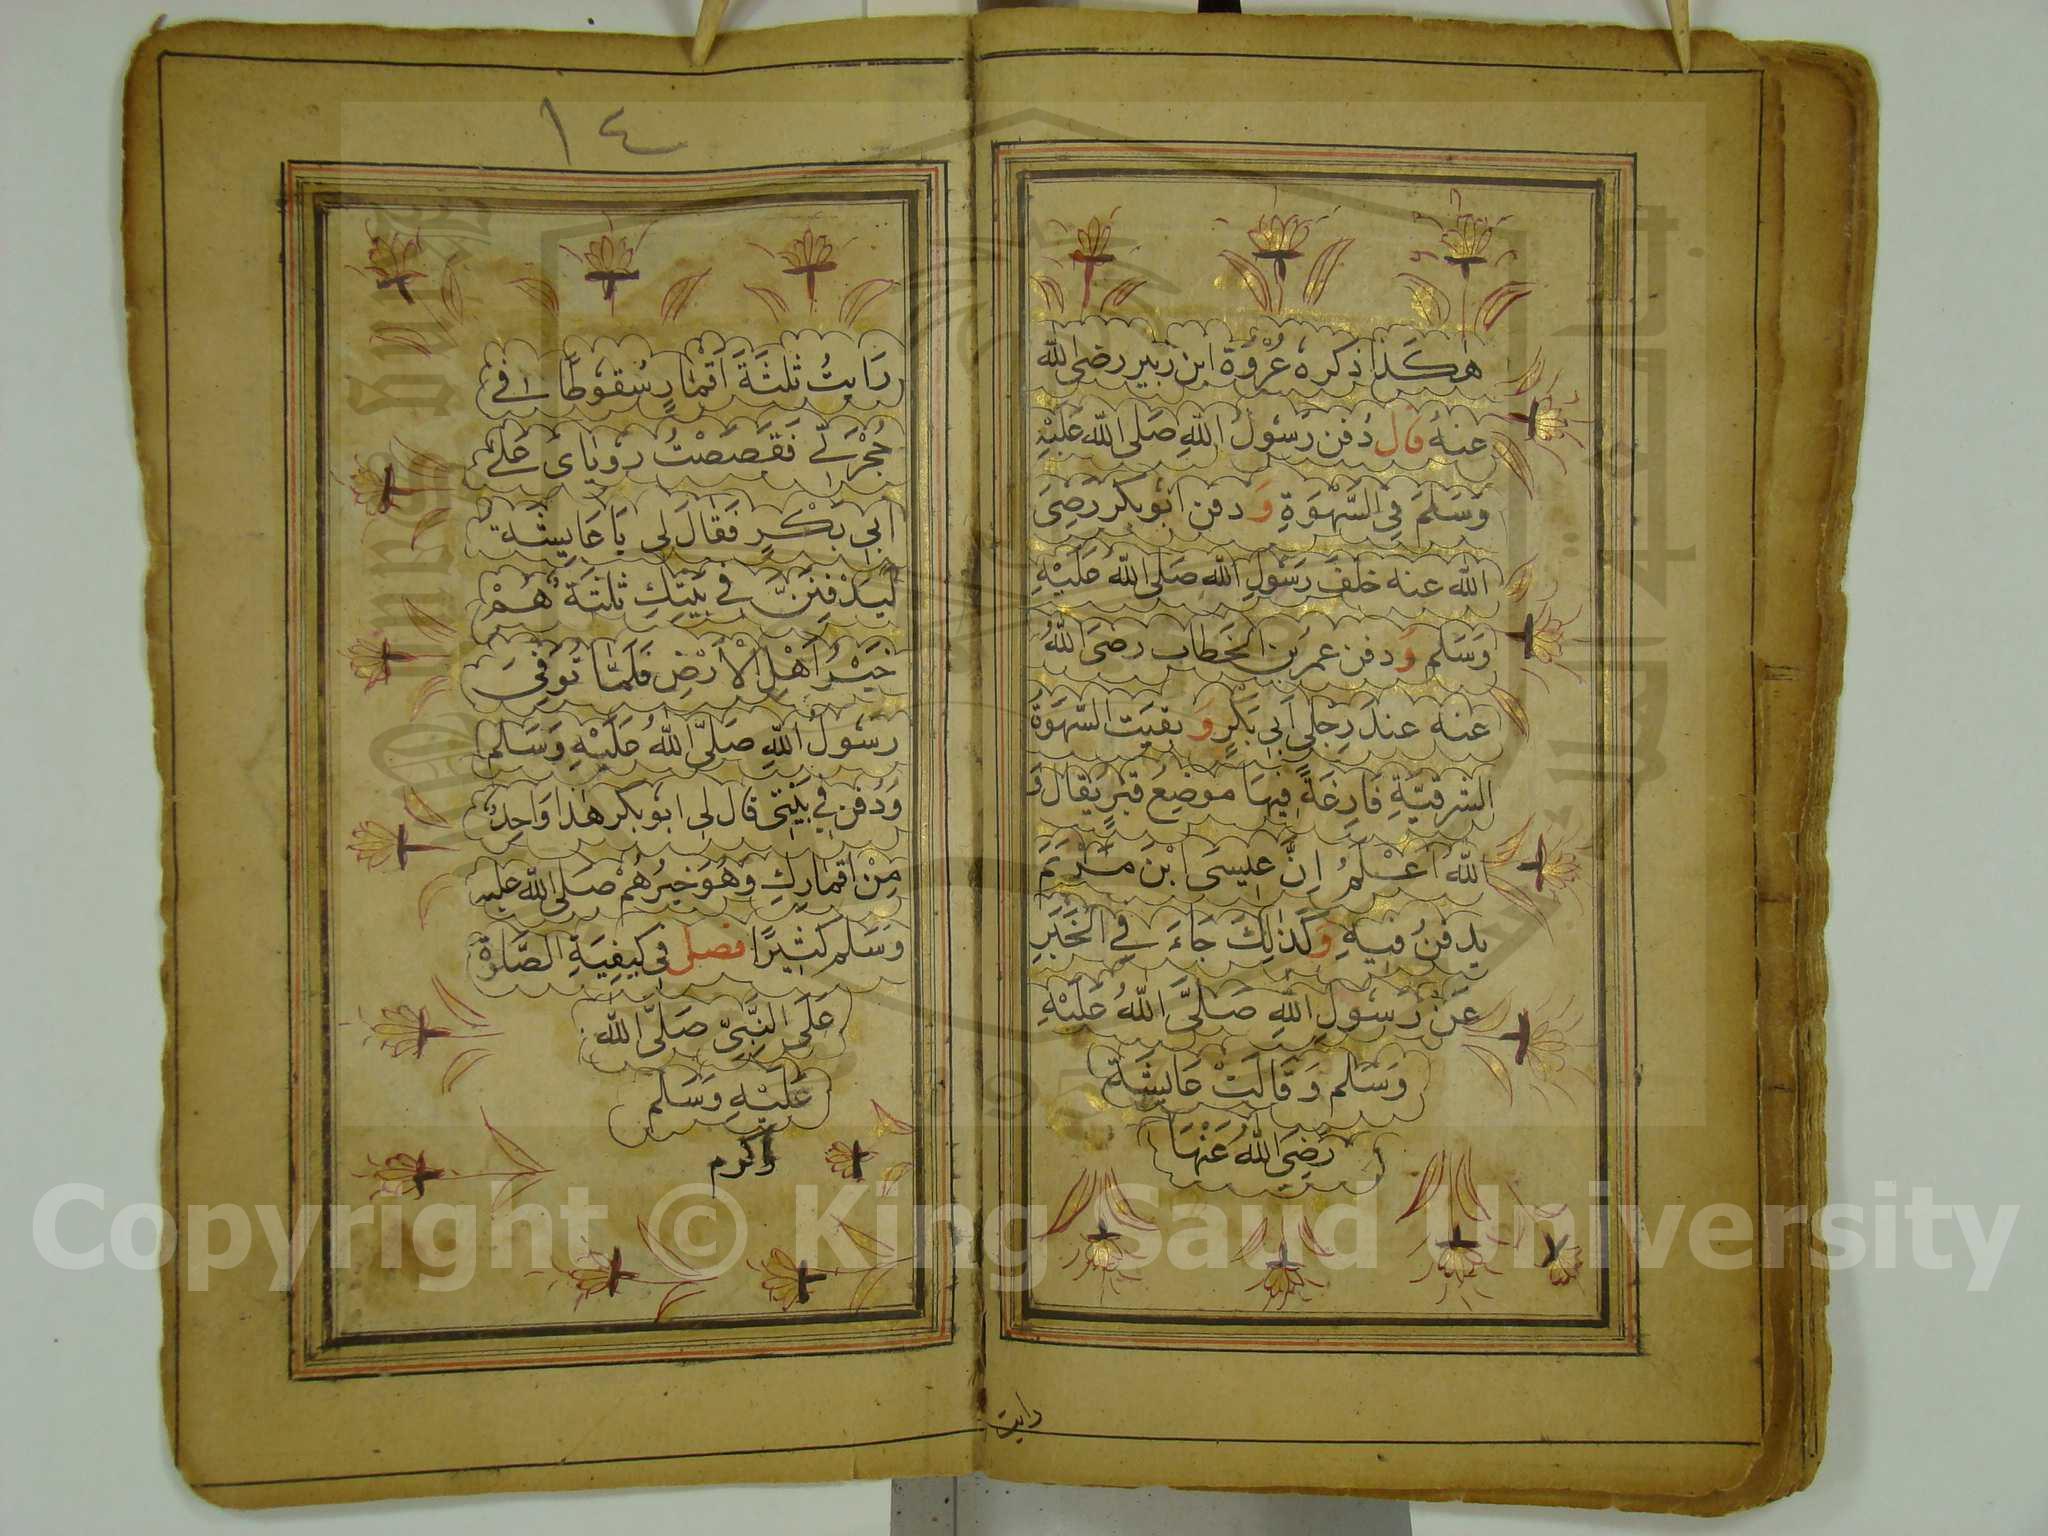 هٰكَذَا ذكره عُرْوَة ابن زبير رضى الله
عنه قال دُفن رَسُولُ اللهِ صَلى الله عَليْهِ
وَسَلمَ فِي السَّهْوَةِ وَ دفن ابُو بكر رَضِيَ
الله عنه خلفَ رَسُولِ اللهِ صَلى اللهُ عَليْهِ
وَسَلم وَ دفن عمر بن الخطاب رضىَ اللهُ
عنه عندَ رِجْلى اَبِى بَكْرٍ وَ بقيَت السَّهوَةُ
الشرقيَّةِ فَارِغَةً فِيهَا موضِعُ قبرٍ يقال وَ
اللهُ اَعْلَمُ اِنَّ عِيسَى ابْنَ مَرْيَمَ
يدفنُ فيهِ وَكَذٰلِكَ جَاءَ فِي الخَبَرِ
عَنْ رَسُولِ اللهِ صَلَّى اللهُ عَلَيْهِ
وَسَلم وَقَالَتْ عَايشَة
رَضِيَ اللهُ عَنْهَا
رايت
١٤
رَايتُ ثلثَةَ اَقْمَارٍ سُقوُطًا فى
حُجْرَتِى فَقَصَصْتُ رؤيَاىَ عَلىٰ
اَبِى بَكْرٍ فَقَالَ لى يَا عَايِشَة
لَيُدْفنَنَّ فِي بَيْتِكِ ثلثَةٌ هُمْ
خَيْرُ اَهْلِ الْاَرْضِ فَلَمَّا تُوُفِىَ
رسُولُ اللهِ صَلَّى اللهُ عَلَيْهِ وَسَلم
وَدُفن فِي بَيْتِى قال لى ابُو بكر هٰذا وَاحِدٌ
مِنْ اَقمَارِكِ وَهُوَ خَيرُهُمْ صَلى الله عليه
وَسَلم كَثِيرًا فصل فى كيفِيَةِ الصَّلٰوة
عَلَى النَّبِىِّ صَلَّى الله
عَلَيْهِ وَسَلم
وكرم
Copyright © King Saud University